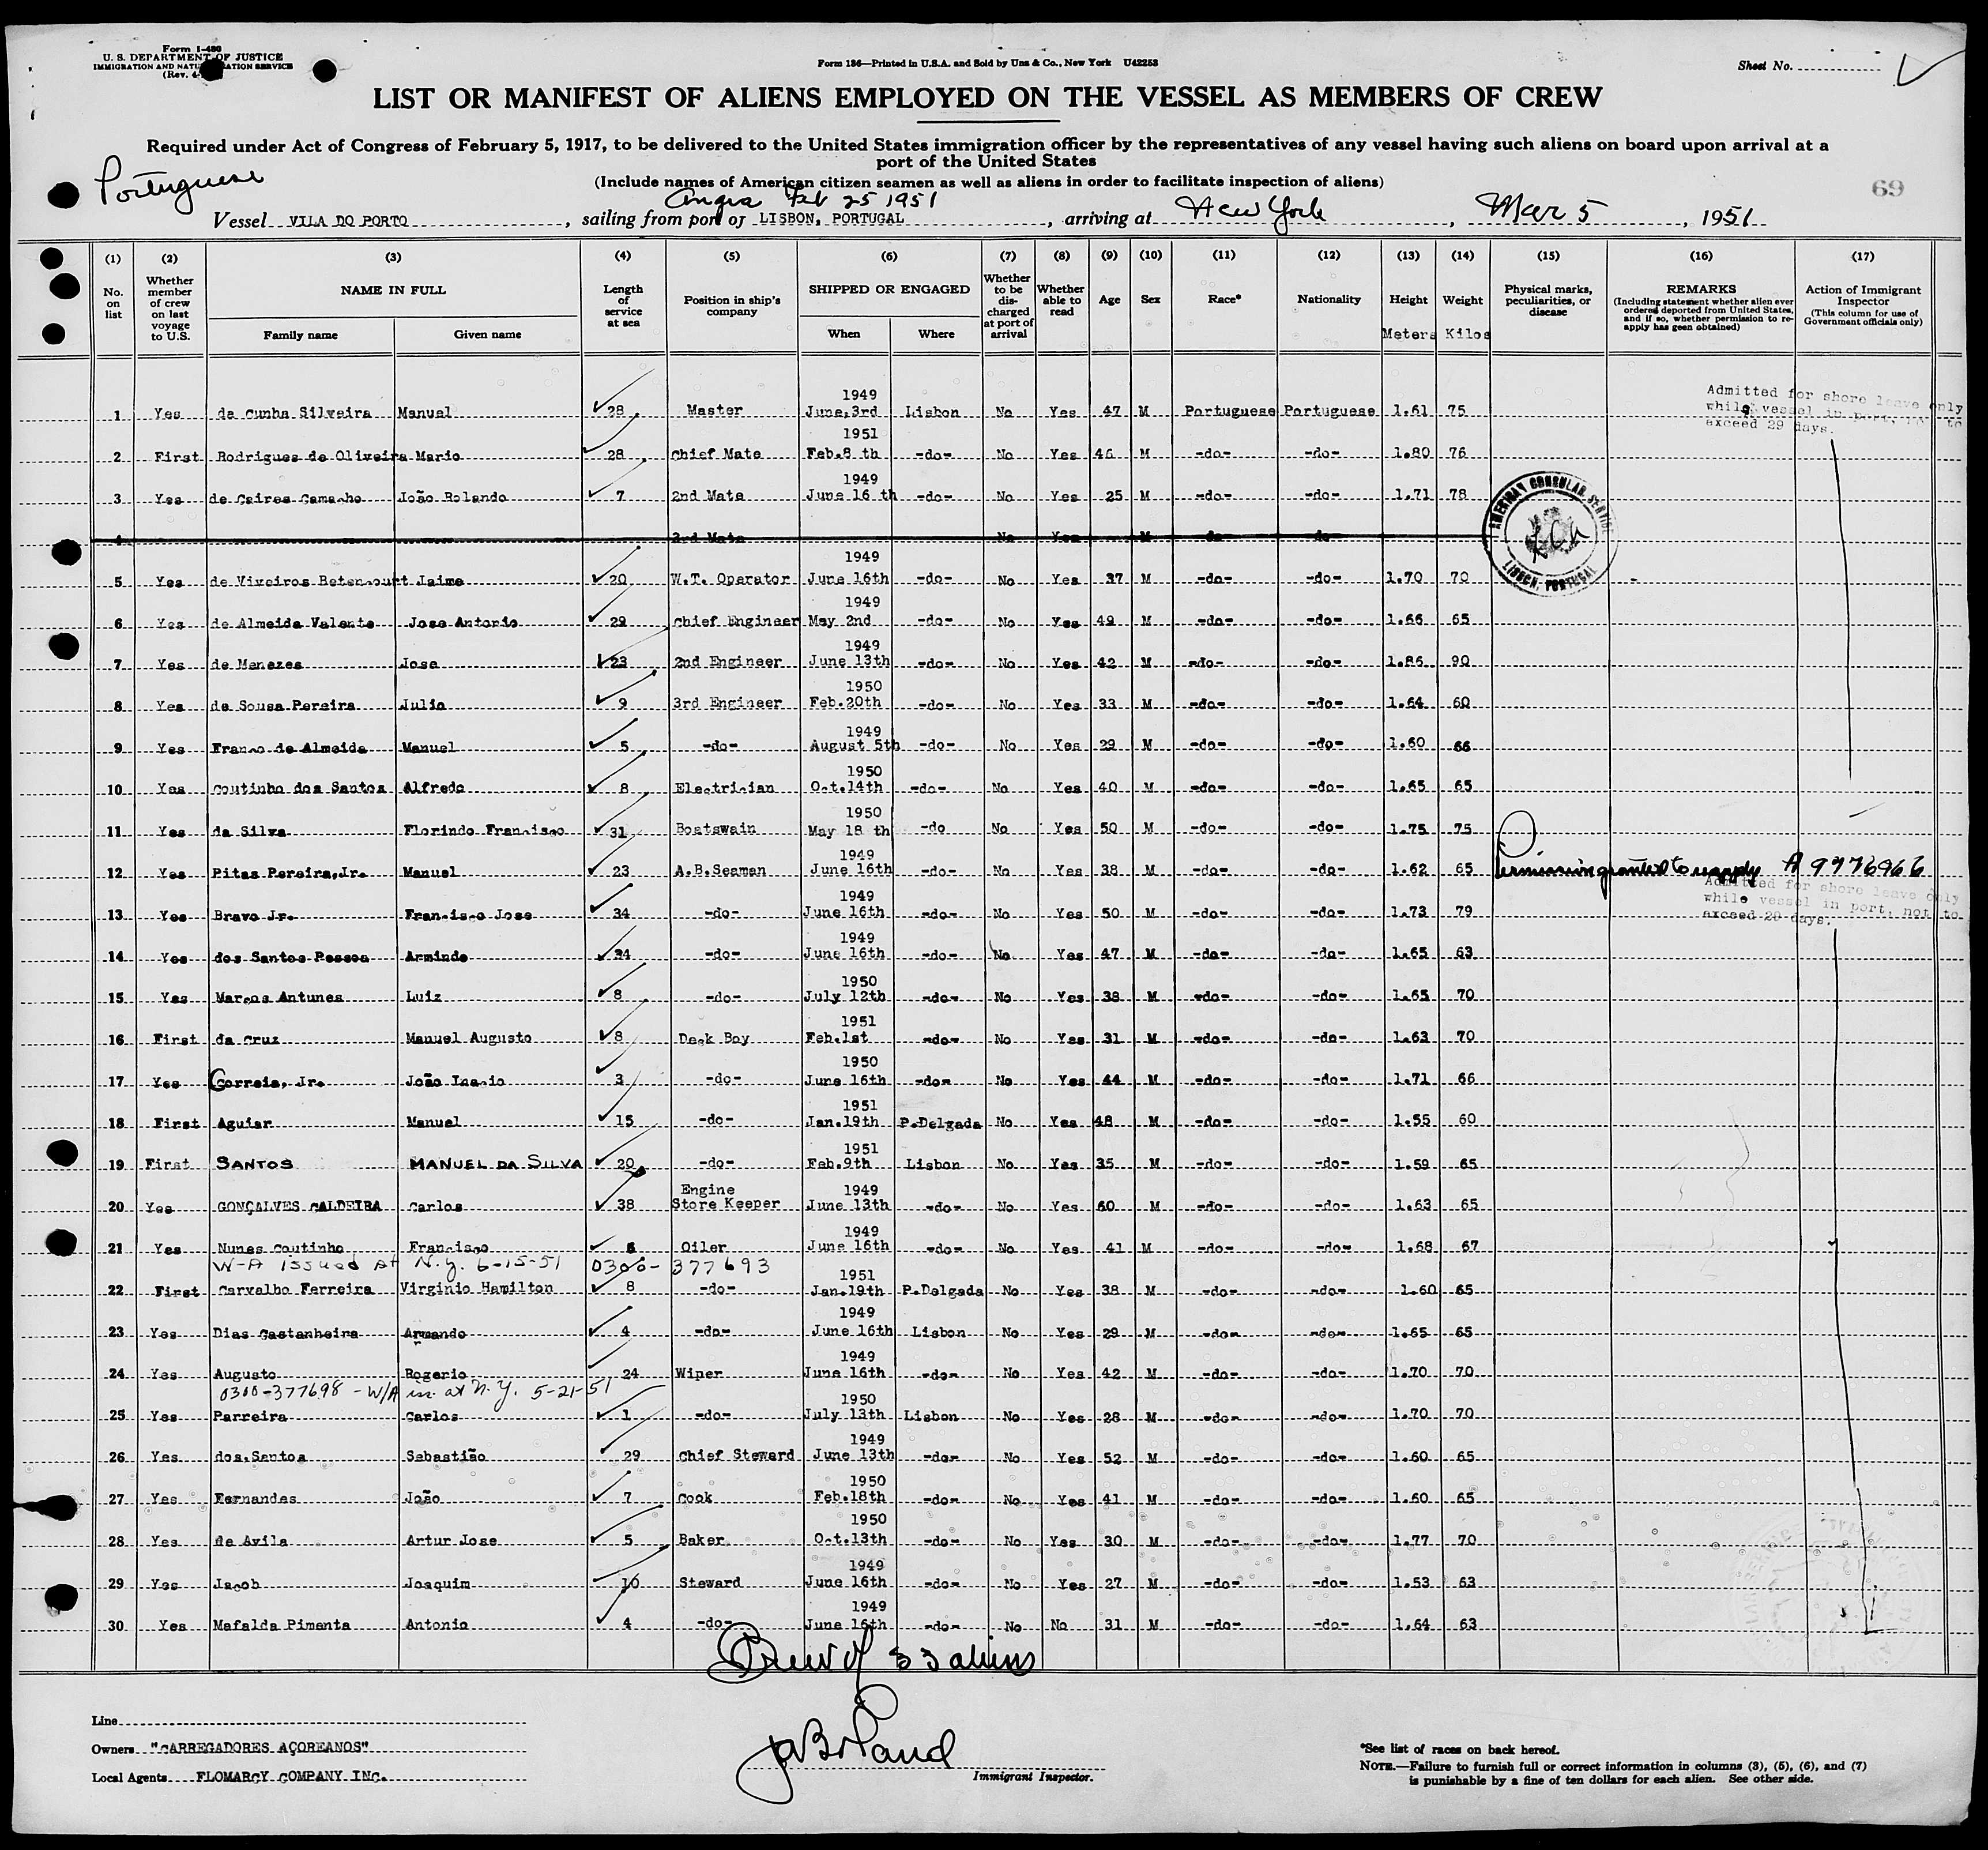 Form I-480
U. S. DEPARTMENT OF JUSTICE
IMMIGRATION AND NATURALIZATION SERVICE
(Rev.
Form 186—Printed in U.S.A. and Sold by Unz & Co., New York U42253
Sheet No.
LIST OR MANIFEST OF ALIENS EMPLOYED ON THE VESSEL AS MEMBERS OF CREW
Required under Act of Congress of February 5, 1917, to be delivered to the United States immigration officer by the representatives of any vessel having such aliens on board upon arrival at a
port of the United States
(Include names of American citizen seamen as well as aliens in order to facilitate inspection of aliens)
Portuguese
69
Angra Feb 25 1951
Vessel VILA DO PORTO, sailing from port of LISBON, PORTUGAL, arriving at New York, Mar 5, 1951
(1) (2) (3) (4) (5) (6) (7) (8) (9) (10) (11) (12) (13) (14) (15) (16) (17)
No. on list
Whether member of crew on last voyage to U.S.
NAME IN FULL
Family name Given name
Length of service at sea
Position in ship's company
SHIPPED OR ENGAGED
When Where
Whether to be discharged at port of arrival
Whether able to read
Age
Sex
Race*
Nationality
Height Meters
Weight Kilos
Physical marks, peculiarities, or disease
REMARKS
(Including statement whether alien ever ordered deported from United States, and if so, whether permission to reapply has geen obtained)
Action of Immigrant Inspector
(This column for use of Government officials only)
1 Yes da Cunha Silveira Manuel 28 Master 1949 June 3rd Lisbon No Yes 47 M Portuguese Portuguese 1.61 75
Admitted for shore leave only
while vessel in port, not to
exceed 29 days.
2 First Rodrigues de Oliveira Mario 28 Chief Mate 1951 Feb.8 th -do- No Yes 46 M -do- -do- 1.80 76
3 Yes de Caires Camacho João Rolando 7 2nd Mate 1949 June 16 th -do- No Yes 25 M -do- -do- 1.71 78
4 3rd Mate No Yes M -do- -do-
AMERICAN CONSULAR SERVICE
LISBON, PORTUGAL
5 Yes de Viveiros Betencourt Jaime 20 W.T. Operator 1949 June 16th -do- No Yes 37 M -do- -do- 1.70 70
6 Yes de Almeida Valente Jose Antonio 29 Chief Engineer 1949 May 2nd -do- No Yes 49 M -do- -do- 1.66 65
7 Yes de Menezes Jose 23 2nd Engineer 1949 June 13th -do- No Yes 42 M -do- -do- 1.86 90
8 Yes de Sousa Pereira Julio 9 3rd Engineer 1950 Feb.20th -do- No Yes 33 M -do- -do- 1.64 60
9 Yes Franco de Almeida Manuel 5 -do- 1949 August 5th -do- No Yes 29 M -do- -do- 1.60 66
10 Yes Coutinho dos Santos Alfredo 8 Electrician 1950 Oct.14th -do- No Yes 40 M -do- -do- 1.65 65
11 Yes da Silva Florindo Francisco 31 Boatswain 1950 May 18 th -do No Yes 50 M -do- -do- 1.75 75
12 Yes Pitas Pereira, Jr. Manuel 23 A.B.Seaman 1949 June 16th -do- No Yes 38 M -do- -do- 1.62 65 Permission granted to reapply A 9776966
Admitted for shore leave only
while vessel in port, not to
exceed 29 days.
13 Yes Bravo Jr. Francisco Jose 34 -do- 1949 June 16th -do- No Yes 50 M -do- -do- 1.73 79
14 Yes dos Santos Pessoa Armindo 24 -do- 1949 June 16th -do- No Yes 47 M -do- -do- 1.65 63
15 Yes Marcos Antunes Luiz 8 -do- 1950 July 12th -do- No Yes 38 M -do- -do- 1.65 70
16 First da Cruz Manuel Augusto 8 Deck Boy 1951 Feb.1st -do- No Yes 31 M -do- -do- 1.63 70
17 Yes Correia, Jr. João Inacio 3 -do- 1950 June 16th -do- No Yes 44 M -do- -do- 1.71 66
18 First Aguiar Manuel 15 -do- 1951 Jan.19th P.Delgada No Yes 48 M -do- -do- 1.55 60
19 First SANTOS MANUEL DA SILVA 20 -do- 1951 Feb.9th Lisbon No Yes 35 M -do- -do- 1.59 65
20 Yes GONÇALVES CALDEIRA Carlos 38 Engine Store Keeper 1949 June 13th -do- No Yes 60 M -do- -do- 1.63 65
21 Yes Nunes Coutinho Francisco 6 Oiler 1949 June 16th -do- No Yes 41 M -do- -do- 1.68 67
W-A issued at N.Y. 6-15-51 0300-377693
22 First Carvalho Ferreira Virginio Hamilton 8 -do- 1951 Jan.19th P.Delgada No Yes 38 M -do- -do- 1.60 65
23 Yes Dias Castanheira Armando 4 -do- 1949 June 16th Lisbon No Yes 29 M -do- -do- 1.65 65
24 Yes Augusto Rogerio 24 Wiper 1949 June 16th -do- No Yes 42 M -do- -do- 1.70 70
0300-377698 - W/A iss. at N.Y. 5-21-51
25 Yes Parreira Carlos 1 -do- 1950 July 13th Lisbon No Yes 28 M -do- -do- 1.70 70
26 Yes dos Santos Sebastião 29 Chief Steward 1949 June 13th -do- No Yes 52 M -do- -do- 1.60 65
27 Yes Fernandes João 7 Cook 1950 Feb.18th -do- No Yes 41 M -do- -do- 1.60 65
28 Yes de Avila Artur Jose 5 Baker 1950 Oct.13th -do- No Yes 30 M -do- -do- 1.77 70
29 Yes Jacob Joaquim 10 Steward 1949 June 16th -do- No Yes 27 M -do- -do- 1.53 63
30 Yes Mafalda Pimenta Antonio 4 -do- 1949 June 16th -do- No No 31 M -do- -do- 1.64 63
Crew of 33 aliens
Line
Owners "CARREGADORES AÇOREANOS"
Local Agents FLOMARCY COMPANY INC.
Immigrant Inspector.
*See list of races on back hereof.
NOTE.—Failure to furnish full or correct information in columns (3), (5), (6), and (7)
is punishable by a fine of ten dollars for each alien. See other side.